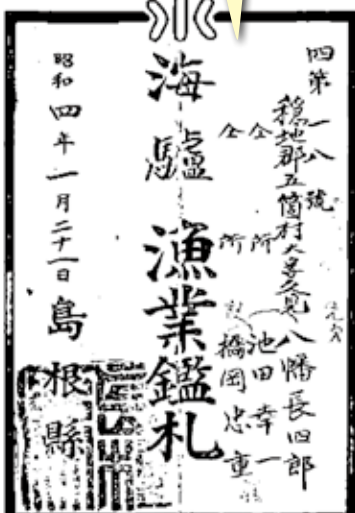 四第一八號
穏地郡五箇村大字久見
八幡長四郎
仝所
池田幸一
仝所
橋岡忠重
海驢漁業鑑札
昭和四年一月二十一日
島根縣